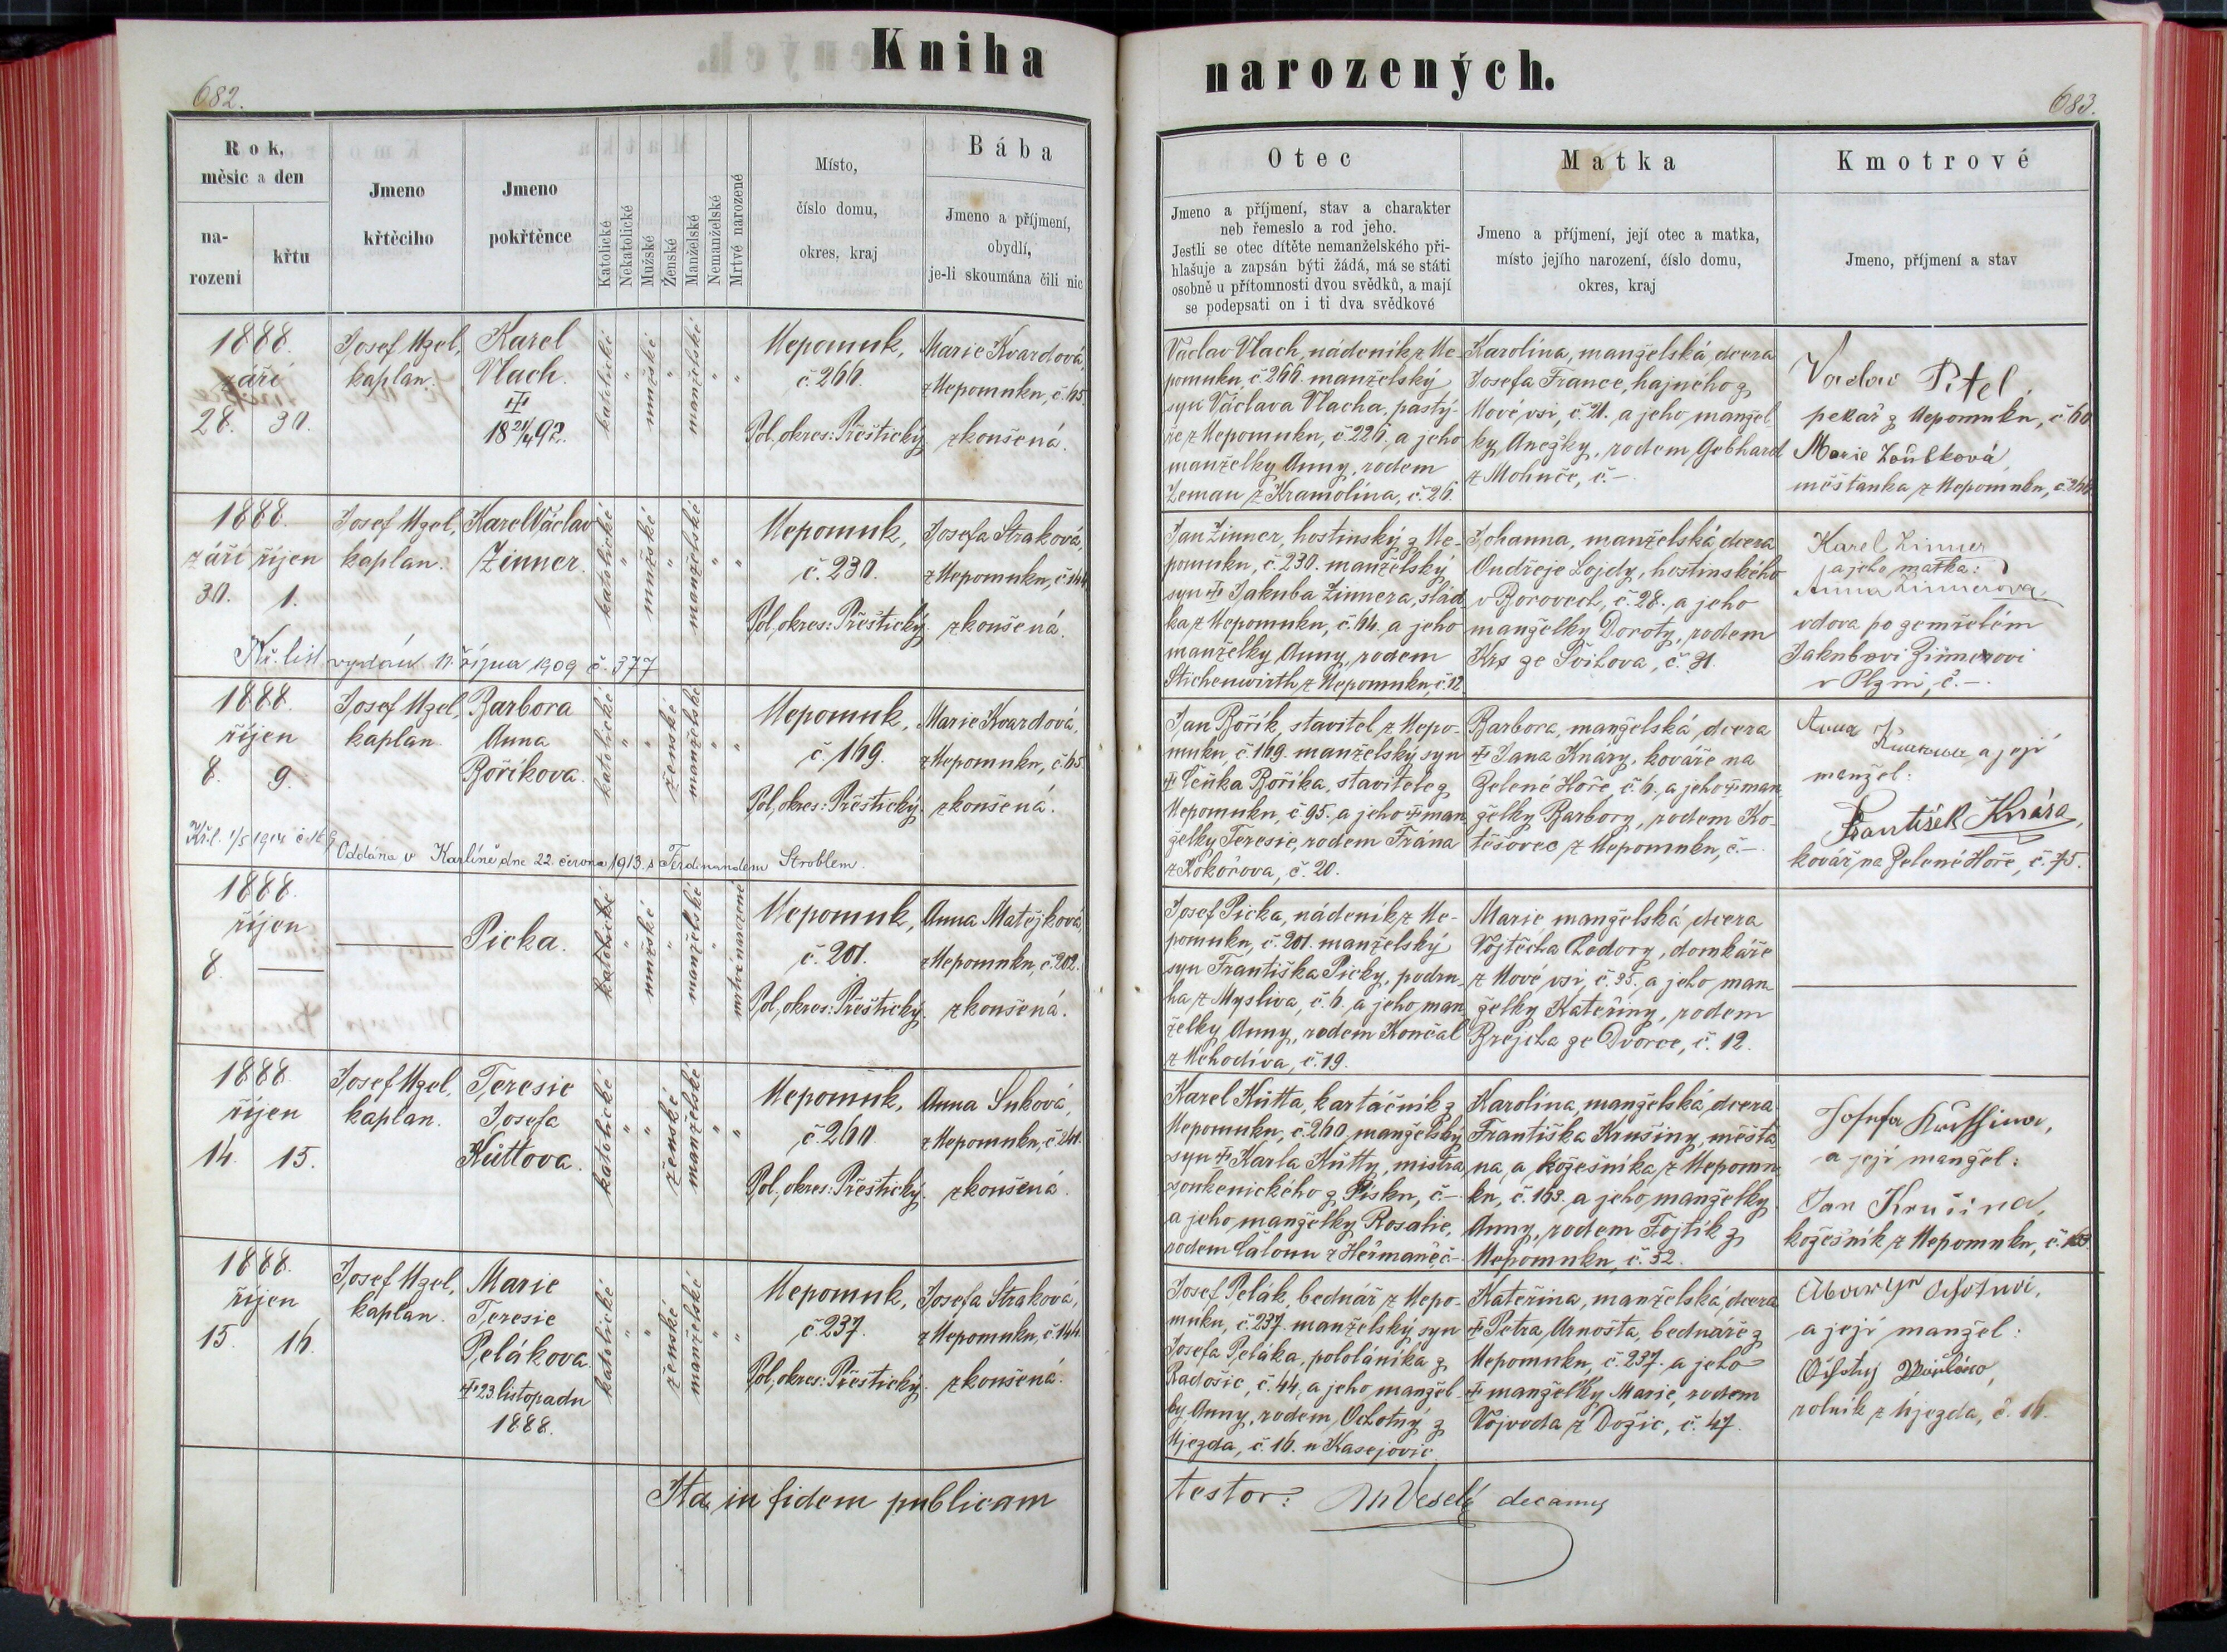 Kniha
narozených.
682.
683.
Rok,
měsíc a den
na-
rození
křtu
Jmeno
křtěcího
Jmeno
pokřtěnce
Katolické
Nekatolické
Mužské
Ženské
Manželské
Nemanželské
Mrtvé narozené
Místo,
číslo domu,
okres, kraj
Bába
Jmeno a příjmení,
obydlí,
je-li skoumána čili nic
Otec
Jmeno a příjmení, stav a charakter
neb řemeslo a rod jeho.
Jestli se otec dítěte nemanželského při-
hlašuje a zapsán býti žádá, má se státi
osobně u přítomnosti dvou svědků, a mají
se podepsati on i ti dva svědkové
Matka
Jmeno a příjmení, její otec a matka,
místo jejího narození, číslo domu,
okres, kraj
Kmotrové
Jmeno, příjmení a stav
1888.
září
28. 30.
Josef Uzel,
kaplan.
Karel
Vlach.
‡
18 21/4 92.
katolické
"
mužské
"
manželské
"
"
Nepomuk,
č. 266.
Pol. okres: Přeštický
Marie Kvardová,
z Nepomuku, č. 65.
zkoušená.
Václav Vlach, nádeník z Ne-
pomuku, č. 266. manželský
syn Václava Vlacha, pastý-
ře z Nepomuku, č. 226. a jeho
manželky Anny, rodem
Zeman z Kramolína, č. 26.
Karolína, manželská dcera
Josefa France, hajného z
Nové vsi, č. 21. a jeho manžel-
ky Anežky, rodem Gebhard
z Mohuče, č. –
Pitel,
pekař z Nepomuku, č. 60
Marie
měšťanka z Nepomuku, č.
1888.
září říjen
30. 1.
Josef Uzel,
kaplan.
Karel Václav
Zinner.
katolické
"
mužské
"
manželské
"
"
Nepomuk,
č. 230.
Pol. okres: Přeštický
Josefa Straková,
z Nepomuku, č. 144.
zkoušená.
Kř. list vydán 11. října 1909 č. 377
Jan Zinner, hostinský z Ne-
pomuku, č. 230. manželský
syn ‡ Jakuba Zinnera, slád-
ka z Nepomuku, č. 64. a jeho
manželky Anny, rodem
Stichenwirth z Nepomuku č. 12
Johanna, manželská dcera
Ondřeje Lojdy, hostinského
v Borovech, č. 28. a jeho
manželky Doroty, rodem
Krs ze Švihova, č. 31.
Karel Zinner
a jeho matka:
Anna Zinnerova
vdova po zemřelém
Jakubovi Zinnerovi
v Plzni, č. –.
1888.
říjen
8. 9.
Josef Uzel,
kaplan.
Barbora
Anna
Boříkova.
katolické
"
"
ženské
manželské
"
"
Nepomuk,
č. 169.
Pol. okres: Přeštický
Marie Kvardová,
z Nepomuku, č. 65.
zkoušená.
Kř. l. 1/5 1914 č. 169
Oddána v Karlíně dne 22. června 1913. s Ferdinandem Stroblem.
Jan Bořík, stavitel z Nepo-
muku, č. 169. manželský syn
‡ Čeňka Boříka, stavitele z
Nepomuku, č. 95. a jeho ‡ man-
želky Teresie, rodem Frána
z Kokořova, č. 20.
Barbora, manželská dcera
‡ Jana Knáry, kováře na
Zelené Hoře, č. 6. a jeho ‡ man-
želky Barbory, rodem Ko-
těšovec z Nepomuku, č. –
Anna a její
manžel:
František Knára,
kovář na Zelené Hoře, č. 75.
1888.
říjen
8.
Picka.
katolické
"
mužské
"
manželské
"
mrtvě narozené
Nepomuk,
č. 201.
Pol. okres: Přeštický
Anna Matějková,
z Nepomuku, č. 202.
zkoušená.
Josef Picka, nádeník z Ne-
pomuku, č. 201. manželský
syn Františka Picky, podru-
ha z Mysliva, č. 6. a jeho man-
želky Anny, rodem Končal
z Nehodiva, č. 19.
Marie manželská dcera
Vojtěcha Chodory, domkáře
z Nové vsi, č. 35. a jeho man-
želky Kateřiny, rodem
Brejcha ze Dvorce, č. 12.
1888.
říjen
14. 15.
Josef Uzel,
kaplan.
Teresie
Josefa
Kůttova.
katolické
"
"
ženské
manželské
"
"
Nepomuk,
č. 260.
Pol. okres: Přeštický
Anna Suková,
z Nepomuku, č. 241.
zkoušená.
Karel Kůtta, kartáčník z
Nepomuku, č. 260, manželský
syn ‡ Karla Kůtty, mistra
soukenického z Písku, č. –
a jeho manželky Rosalie,
rodem Čaloun z Heřmaně, č. –
Karolína, manželská dcera
Františka Krušiny, měšťa-
na, a kožešníka z Nepomu-
ku, č. 163. a jeho manželky
Anny, rodem Fojtík z
Nepomuku, č. 52.
Josefa
a její manžel:
Jan Krušina,
kožešník z Nepomuku, č. 163.
1888.
říjen
15. 16.
Josef Uzel,
kaplan.
Marie
Teresie
Pelákova.
‡ 23. listopadu
1888.
katolické
"
"
ženské
manželské
"
"
Nepomuk,
č. 237.
Pol. okres: Přeštický
Josefa Straková,
z Nepomuku, č. 144.
zkoušená.
Josef Pelák, bednář z Nepo-
muku, č. 237. manželský syn
Josefa Peláka, pololáníka z
Radošic, č. 44, a jeho manžel-
ky Anny, rodem Ochotný z
Újezda, č. 16. u Kasejovic.
Kateřina, manželská dcera
‡ Petra Arnošta, bednáře z
Nepomuku, č. 237. a jeho
‡ manželky Marie, rodem
Vojvoda z Dožic, č. 47.
a její manžel:
rolník z Újezda, č. 16.
Ita in fidem publicam
testor: Veselý decanus